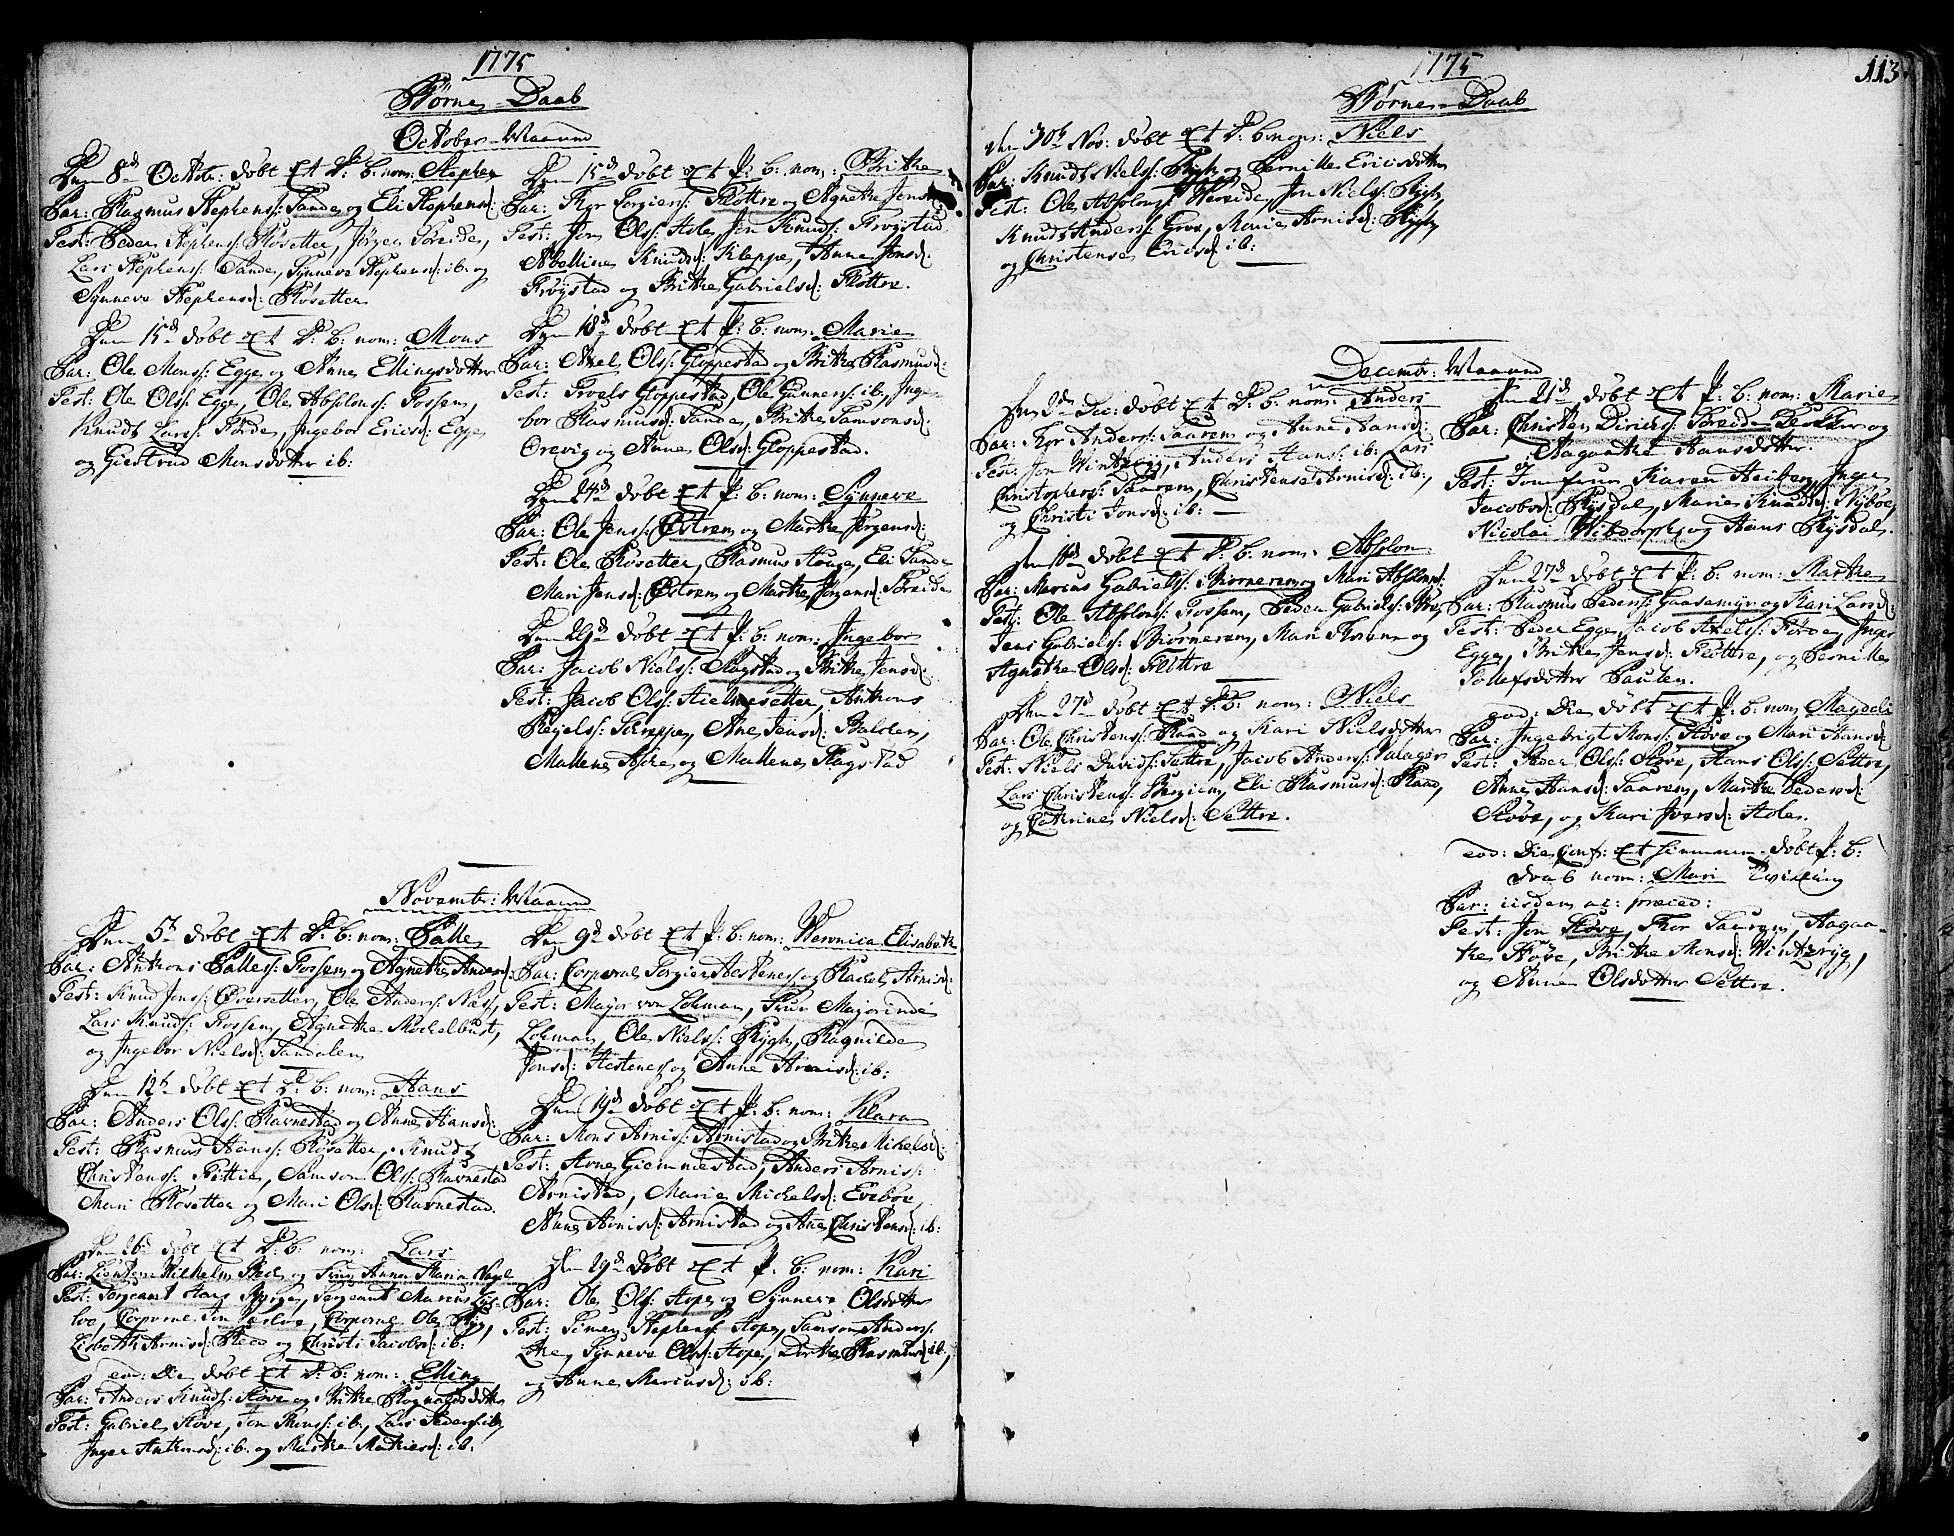 1775
Børne-Daab
October-Maaned
Den 8de Octobr: døbt et D: b: nom: Stephen
Par: Rasmus Stephens: Sande og Eli Stephensd:
Test: Peder Stephens: Røsetter, Jørgen Soreide,
Lars Stephens: Sande, Synneve Stephensd: ib: og
Synneve Stephensd: Røsetter
Den 15de døbt et D: b: nom: Mons
Par: Ole Mons: Egge og Anne Ellingsdotter
Test: Ole Ols: Egge, Ole Absolons: Fossem,
Knudt Lars: Førde, Ingebor Ericsd: Egge
og Giertrud Monsdotter ib:
Den 15de døbt et P: b: nom: Brithe
Par: Thor Torgiers: Flottre og Agnethe Jensd:
Test: Jon Ols: Hole, Jon Knuds: Frøystad
Abelline Knudsd: Kleppe, Anne Jonsd:
Frøystad og Brithe Gabrielsd: Flottre.
Den 18de døbt et P: b: nom: Marie
Par: Axel Ols: Gloppestad og Brithe Rasmusd:
Test: Troels Gloppestad, Ole Gunners: ib:, Inge-
bor Rasmusd: Sande, Brithe Samsonsd:
Orevig og Anne Olsd: Gloppestad.
Den 24de døbt et P: b: nom: Synneve
Par: Ole Jens: Østrem og Marthe Jørgensd:
Test: Ole Røsetter, Rasmus Hauge, Eli Sande
Mari Jensd: Østrem og Marthe Jørgensd: Soreide
Den 29de døbt et P: b: nom: Ingebor
Par: Jacob Niels: Ragstad og Brithe Jensd:
Test: Jacob Ols: Hielmesetter, Anthons
Skeyels: Kamppe, Ane Jensd: Balsten,
Mallene Aske og Mallene Ragstad
Novembr: Maaned
Den 5te døbt et D: b: nom: Palle
Par: Anthoni Palles: Fossem og Agnethe Andersd:
Test: Knud Jons: Øvresetter, Ole Anders: Næss,
Lars Knuds: Fossem, Agnethe Mickelbust,
og Ingebor Nielsd: Sandalen
Den 12te døbt et D: b: nom: Hans
Par: Anders Ols: Ravnestad og Anne Hansd:
Test: Rasmus Hans: Røsetter, Knud
Christens: Fittie, Samson Ols: Ravnestad
Mari Røsetter og Mari Olsd: Ravnestad.
Den 26de døbt et D: b: nom: Lars
Par: Lieuten: Wilhelm Sted og Frue Anne Maria Nagel
Test: Sergeant Hans Børge, Sergeant Marcus Løs-
løe, Corporal Jon Løsløe, Corporal Ole Ryg,
Lisbeth Arnisd: Steed og Christi Jacobsd: ib:
eod: Die døbt et D: b: nom: Elling
Par: Anders Knuds: Støve og Brithe Rognaldsdotter
Test: Gabriel Støve, Jon Mons: ib:, Lars Peders: ib:
Inger Anthonsd: ib: og Marthe Mathiesd: ib:
Den 9de døbt et P: b: nom: Weronica Elisabeth
Par: Corporal Torgier Hestenes og Rachel Arnisd:
Test: Major von Lohman, Frue Majorinde
Lohman, Ole Niels: Rygh, Ragnilde
Jonsd: Hestenes og Anne Arnisd: ib:
Den 19de døbt et P: b: nom: Klara
Par: Mons Arnis: Arnistad og Brithe Mickelsd:
Test: Arne Giemmestad, Anders Arnis:
Arnistad, Marie Mickelsd: Evebøe,
Anne Arnisd: Arnistad og Ane Christensd: ib:
Den 29de døbt et P: b: nom: Kari
Par: Ole Ols: Hope og Synneve Olsdotter
Test: Simen Stephens: Hope, Samson Anders:
Løke, Synneve Olsd: Hope, Dorthe Rasmusd: ib:,
og Anne Mariusd: ib:
1775
113
Børne-Daab
den 30te Nov: døbt et D: b: nom: Niels
Par: Knudt Niels: Rygh og Pernille Ericsdotter
Test: Ole Absolons: Wereide, Jon Niels: Rygh,
Knudt Anders: Grov, Marie Arnisd: Rygh,
og Christense Ericsd: ib:
Decembr: Maaned
Den 3de Dec: døbt et D: b: nom: Anders
Par: Thor Anders: Taarem og Anne Hansd:
Test: Jon Wintereg, Anders Hans: ib: Lars
Christophers: Taarem, Christense Arnisd: ib:,
og Christi Jonsd: ib:
Den 10de døbt et D: b: nom: Absolon
Par: Marcus Gabriels: Biørnerem og Mari Absolonsd:
Test: Ole Absolons: Fossem, Peder Gabriels: Aus,
Jens Gabriels: Biørnerem, Mari Fløtre og
Agnethe Olsd: Flottre
Den 27de døbt et D: b: nom: Niels
Par: Ole Christens: Raad og Kari Nielsdotter
Test: Niels Davids: Settre, Jacob Anders: Valager
Lars Christens: Bergiem, Eli Rasmusd: Raad,
og Cathrine Nielsd: Settre.
Den 21de døbt et P: b: nom: Marie
Par: Christen Dirics: Soreide Dekker og
Aagaathe Hansdotter.
Test: Jomfrue Karen Heiberg, Inger
Jacobsd: Rysdal, Marie Knudsd: Nybøe,
Nicolai Wibdorph og Hans Rysdal.
Den 27de døbt et P: b: nom: Marthe
Par: Rasmus Peders: Gaasemyr og Kari Larsd:
Test: Peder Egge, Jacob Axels: Førde, Inger
Egge, Brithe Jensd: Flottre, og Pernille
Tollefsdotter Paulen.
eod: Die døbt et P: b: nom: Magdeli
Par: Ingebrigt Mons: Støve og Mari Hansd:
Test: Peder Ols: Støve, Hans Ols: Settre,
Anne Hansd: Taarem, Marthe Pedersd:
Støve, og Kari Iversd: Hole.
eod: Die Conf: et hiemme-døbt P: b:
daab nom: Mari Tvilling
Par: iisdem ac: præced:
Test: Jon Støve, Thor Taarem, Aagaa-
the Støve, Brithe Monsd: Wintereg,
og Anne Olsdotter Settre.